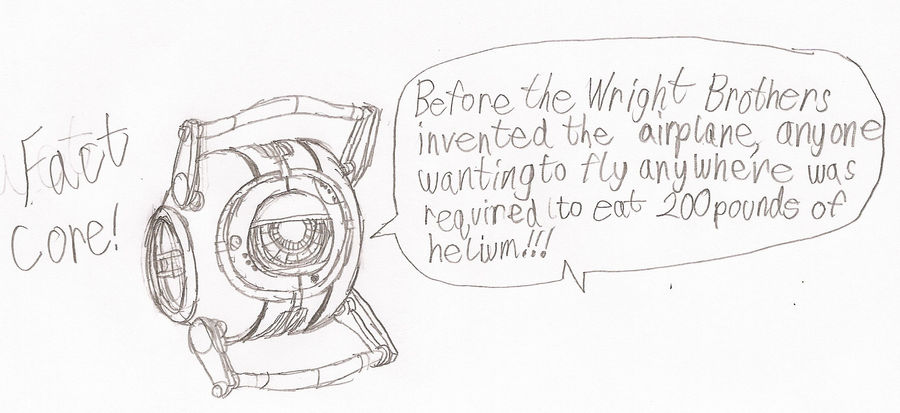 Fact
Core!
Before the Wright Brothers
invented the airplane, anyone
wanting to fly anywhere was
required to eat 200 pounds of
helium!!!